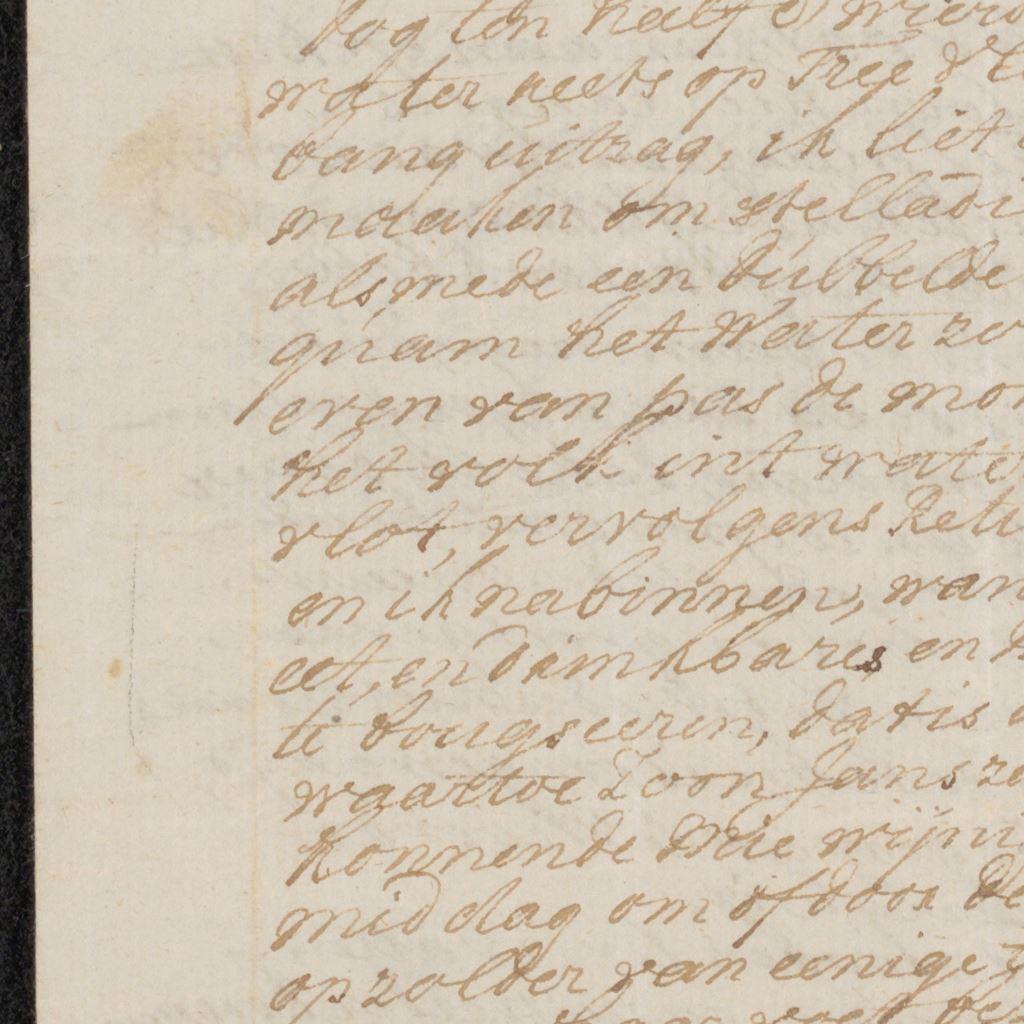 dog ten half
water reets op Tree
bang uijtzag, ik liet
maaken om stelladi
alsmede een dubbelde
quam het Water zo
even van pas de mor
het volk int wate
vlot, vervolgens
en ik nabinnen, wan
eet, en drinkbares en
te bougseeren, dat is
waartoe Toon Jans zo
konnende Drie wijn
middag om of door de
op zolder van eenige